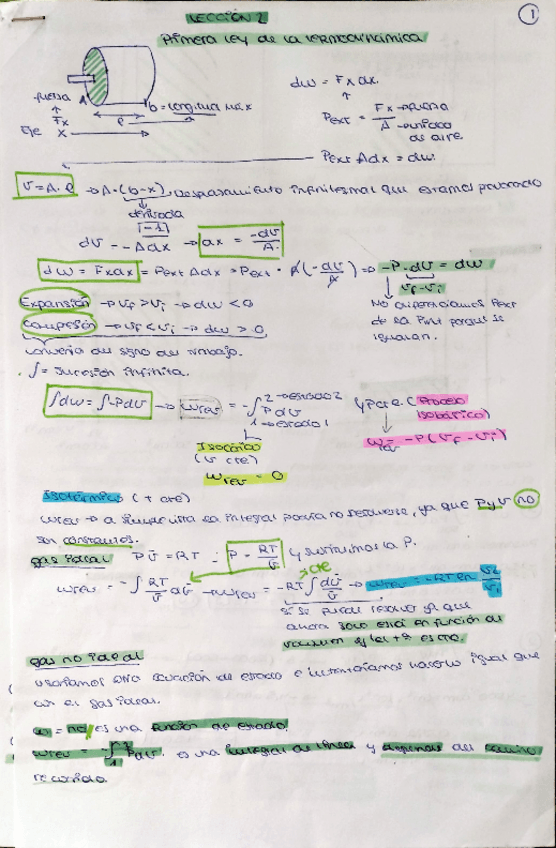 LECCIÓN 2
1
Primera ley de la termodinámica
fuerza
Fx
Eje x
A
l
b = longitud máx
dw = Fx dx.
Pext = Fx → fuerza / A → unidad de área
Pext A dx = dw.
V = A · l → A · (b - x). Desplazamiento infinitesimal que estamos provocando
derivada
[-1]
dV = -A dx → dx = -dV / A
dw = Fx dx = Pext A dx = Pext · A (-dV / A) → -P · dV = dw
Vf - Vi
Expansión → Vf > Vi → dw < 0
Compresión → Vf < Vi → dw > 0
No diferenciamos Pext de la Pint porque se igualan.
Convenio del signo del trabajo.
∫ = sucesión infinita.
∫dw = ∫-PdV → Wrev = -∫ P dV
2 → estado 2
1 → estado 1
y P cte. (Proceso isobárico)
Wrev = -P (Vf - Vi)
Isocórico
(V cte)
Wrev = 0
Isotérmico (T cte)
Wrev → a simple vista la integral podría no resolverse, ya que P y V no
son constantes.
gas ideal PV̄ = RT : P = RT / V̄ y sustituimos la P.
cte
Wrev = -∫ RT / V̄ dV̄ → Wrev = -RT ∫ dV̄ / V̄ → Wrev = -RT ln V2 / V1
Sí se puede resolver ya que
ahora solo está en función del
volumen y la tª es cte.
gas no ideal
usaríamos otra ecuación de estado e intentaríamos hacerlo igual que
con el gas ideal.
w = no es una función de estado.
Wrev = -∫ PdV. es una integral de línea y depende del camino
recorrido.